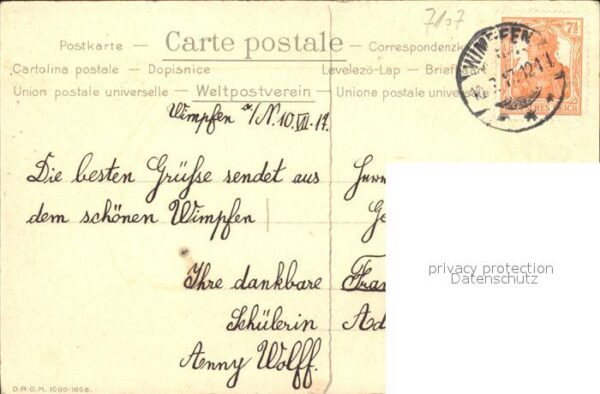 7107
Postkarte — Carte postale — Correspondenzk
Cartolina postale — Dopisnice Levelező-Lap — Brief
Union postale universelle — Weltpostverein — Unione postale univers
WIMPFEN
7½
Wimpfen a/N. 10. VII. 17.
Die besten Grüsse sendet aus
dem schönen Wimpfen
Ihre dankbare
Schülerin
Anny Wolff.
Herr
Ge
Fra
Ad
privacy protection
Datenschutz
D.R.G.M. 1000-1006.